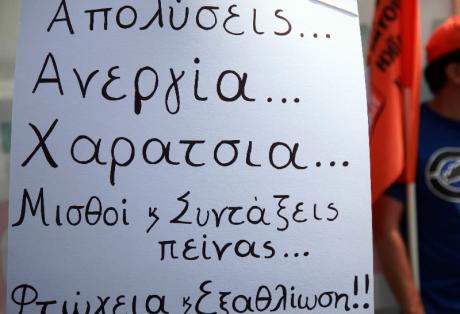 Απολύσεις...
Ανεργία...
Χαρατσια...
Μισθοί κ Συντάξεις
πείνας...
Φτώχεια κ Εξαθλίωση!!